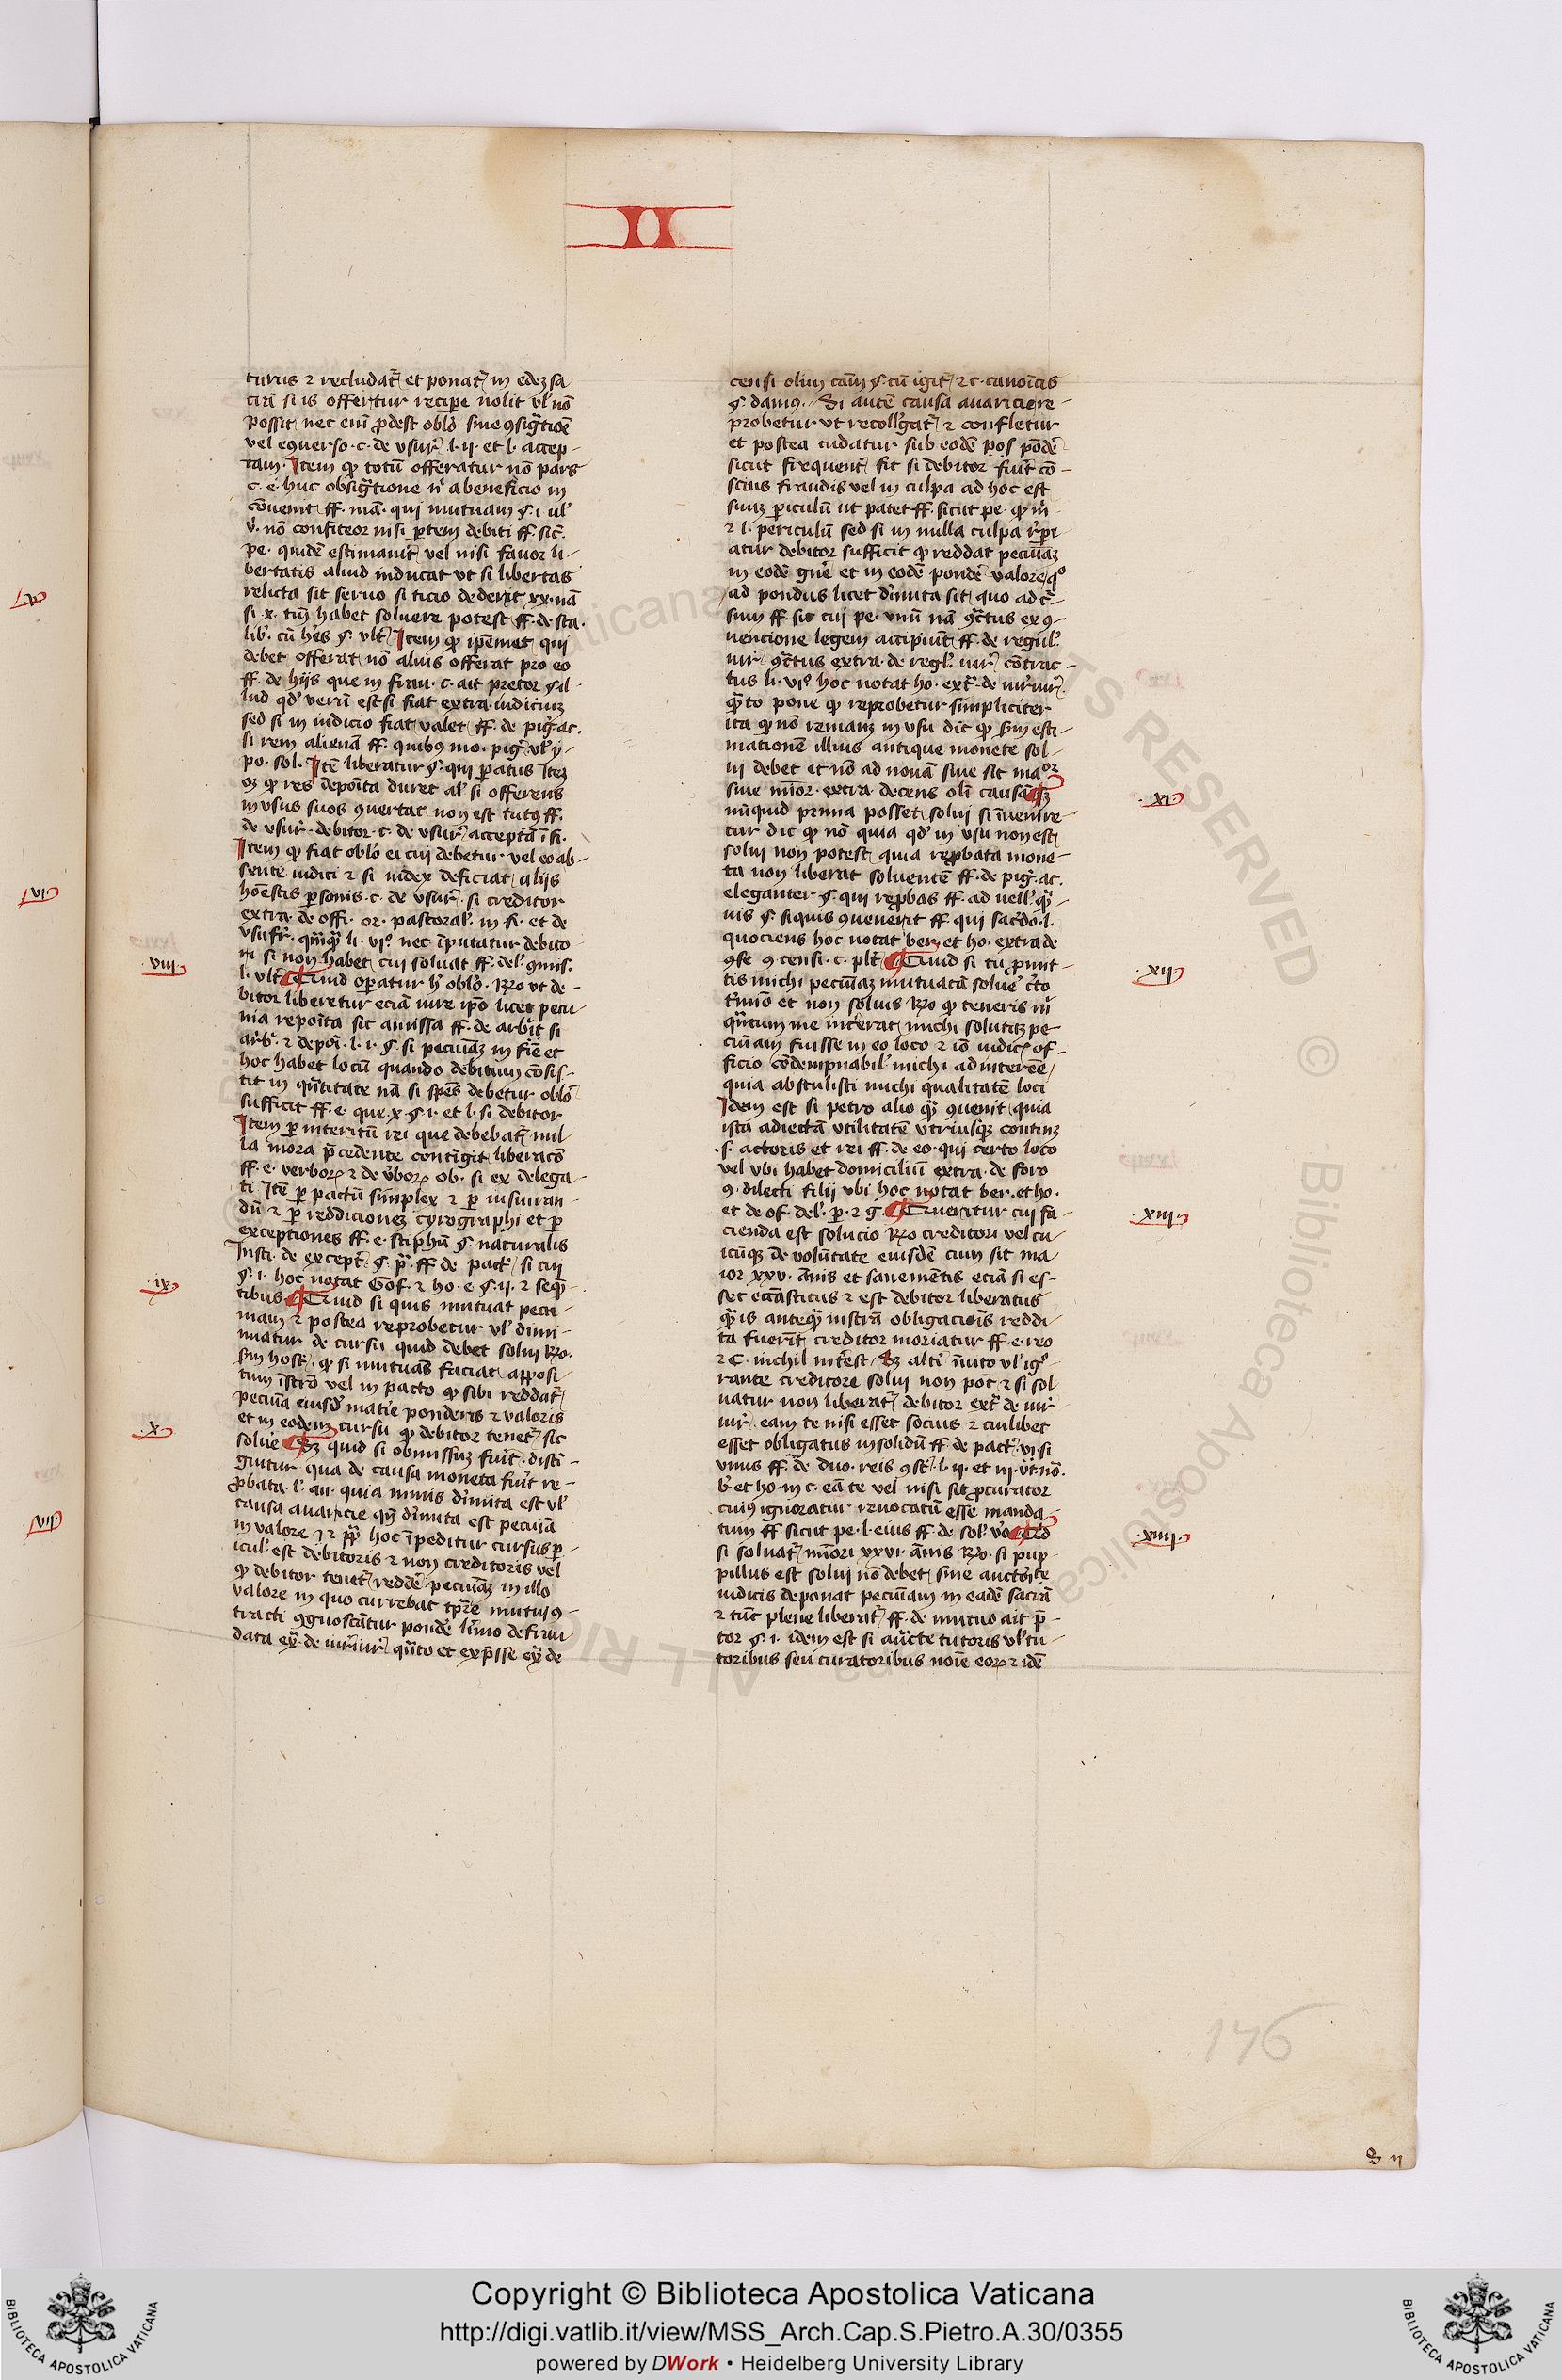 II
turris ⁊ recludat᷑ et ponat᷑ in edeꝫ sa
crā si is offertur recipe nolit vl' nō
possit nec eni᷑ ꝓdest oblō sine ꝯsig᷑tiōe
vel eꝯuerso · c · de vsur᷑ · l · ii · et l · accep-
tam · Item ꝙ totū offeratur nō pars
c · e · huc obsig᷑tione n' a beneficio in
cōuenit ff · mā · qui mutuam §· i · ul'
v · nō confiteor nisi ꝑtem debiti ff · sic᷑ ·
pe · quidē estimauit vel nisi fauor li-
bertatis aliud inducat vt si libertas
relicta sit seruo si ticio dederit xx · nā
si · x · tm̄ habet soluere potest ff · de sta ·
lib' · cū h'es §· vlt᷑ Item ꝙ ip̄emet qui
debet offerat nō alius offerat pro eo
ff · de hijs que in frau · c · ait pretor § il-
lud qd' verū est si fiat extra iudiciuꝫ
sed si in iudicio fiat valet ff · de pig᷑ · ac ·
si rem alienā ff · quibꝰ mo · pig᷑ vl' y-
po · sol · Itē liberatur §· qui ꝑatus Iteꝫ
oꝫ ꝙ res depoīta duret al' si offerens
in vsus suos ꝯuertat non est tutꝰ ff ·
de vsur᷑ · debitor · c · de vsur᷑ acceptā ī fi ·
Item ꝙ fiat oblō ei cui debetur vel eo ab-
sente iudici ⁊ si iudex deficiat alijs
hoēstis ꝑsonis · c · de vsur᷑ · si creditor
extra · de offi · or · pastoral' · in fi · et de
vsufr᷑ · qm̄qᷓ li · vi° · nec īputatur debito-
ri si non habet cui soluat ff · del' ꝯmis ·
· viii ·
l · vlt᷑ ¶ Quid oꝑatur h' oblō · Rꝫo vt de-
bitor liberetur eciā iure ip̄o licet pecu-
nia repoīta sit amissa ff · de arbit᷑ si
arb' · ⁊ depoī · l · i · §· si pecuiāꝫ in fiē et
hoc habet locū quando debitum cōsis-
tit in q᷑ntitate nā si sp̄es debetur oblō
sufficit ff · e · que · x · §· i · et l · si debitor
Item ꝑ interitū rei que debebat᷑ nul-
la mora p̄cedente contigit liberacō
ff · e · verboꝝ ⁊ de v'boꝝ ob · si ex delega-
ti Itē ꝑ pactū simplex ⁊ ꝑ iusiuran-
dū ⁊ ꝑ reddicioneꝫ cyrographi et ꝑ
exceptiones ff · e · stiphū §· naturalis
Insti · de except᷑ · §· pᷓ · ff · de pact᷑ · si cui
§· i · hoc notat Gof · ⁊ ho · e · §· ii · ⁊ seqᷓ-
· ix ·
tibus ¶ Quid si quis mutuat pecu-
niam ⁊ postea reprobetur vl' dimi-
nuatur de cursu quid debet solui Rꝫo ·
sm host᷑ · ꝙ si mutuās faciat apposi-
tum īstrō vel in pacto ꝙ sibi reddat᷑
pecuīa eiusd' mat'ie ponderis ⁊ valoris
et in eodem cursu ꝙ debitor tenet᷑ sic
· x ·
solue ¶ Sꝫ quid si obmissuꝫ fuit᷑ · disti-
guitur qua de causa moneta fuit re-
ꝓbata · l' · au · quia nimis dimīuta est vl'
causa auaricie qꝫ dimīuta est pecuīa
in valore ⁊ ꝑ hoc īpeditur cursus ꝑ-
icul' est debitoris ⁊ non creditoris vel
ꝙ debitor tenet᷑ redde pecuiāꝫ in illo
valore in quo currebat tp̄re mutui ꝯ-
tracti ꝯgnoscātur pondē l'imo defrau-
data ex᷑ · de iur᷑iur᷑ q᷑nto et exp̄sse ex᷑ de
censi olim cām §· cū igit᷑ ⁊ c · canoīcis
§· damꝰ · Si autē causa auaricie re-
probetur vt recolligat᷑ ⁊ confletur
et postea cudatur sub eodē pos pōdē
sicut frequent᷑ fit si debitor fuit cō-
scius fraudis vel in culpa ad hoc est
suuꝫ ꝑiculū ut patet ff · sicut pe · ꝙ in
⁊ l · periculū sed si in nulla culpa r'ꝑi-
atur debitor sufficit ꝙ reddat pecuīaꝫ
in eodē gn'e et in eodē pondē valore q°
ad pondus licet dimīuta sit quo ad c᷑-
sum ff · sic cui pe · vnū nā ꝯtractus ex ꝯ-
uencione legem accipiūt ff · de regul' ·
iur᷑ ꝯtractus extra · de regl' · iur᷑ cōtrac-
tus li · vi° · hoc notat ho · ext᷑ · de iur᷑iur᷑ ·
qᷓto pone ꝙ reprobetur simpliciter
ita ꝙ nō remaneꝫ in vsu dic ꝙ sm esti-
mationē illius antique monete sol-
ui debet et nō ad nouā siue sit maior
· xi ·
siue mīor · extra · de cens olī causā ¶ Sꝫ
nūquid prima posset solui si īuenire-
tur dic ꝙ nō quia qd' in vsu non est
solui non potest quia reꝓbata mone-
ta non liberat soluentē ff · de pig᷑ · ac ·
eleganter §· qui reꝓbas ff · ad uell' · qᷓ-
uis §· siquis ꝯuenerit ff · qui sac'do · l ·
quociens hoc notat ber · et ho · extra de
· xii ·
ꝯse ꝯ censi · c · plt᷑ ¶ Quid si tu ꝓmit-
tis michi pecuīaꝫ mutuatā solue c'to
t'mīo et non soluis Rꝫo ꝙ teneris in
qᷓntum me int'erat michi solutāꝫ pe-
cūiam fuisse in eo loco ⁊ iō iudic᷑ of-
ficio condempnabil' michi ad interēē
quia abstulisti michi qualitatē loci
Idem est si petro alio qᷓ ꝯuenit quia
ista adiectā vtilitatē vtriusqꝫ contineꝫ
· s · actoris et rei ff · de eo · qui certo loco
vel vbi habet domiciliū extra · de foro
ꝯ · dilecti filij vbi hoc notat ber · et ho ·
· xiii ·
et de of · del' · p · ⁊ g · ¶ Queritur cui fa-
cienda est solucio Rꝫo creditori vel cu-
icūqꝫ de volūtate eiusdē cum sit ma-
ior xxv · annis et sane mētis eciā si es-
set ecc'iasticus ⁊ est debitor liberatus
qᷓuis anteqᷓ īstrā obligaciōis reddi-
ta fuerīt creditor moriatur ff · e · reo
⁊ C · nichil int'est / Sꝫ alt'i īuito vl' ig°-
rante creditore solui non pōt ⁊ si sol-
uatur non liberat᷑ debitor ext᷑ de iur᷑
iur᷑ · eam te nisi esset socius ⁊ cuilibet
esset obligatus insolidū ff · de pact᷑ · vi · si
vnus ff · de duo · reis ꝯst᷑ · l · ii · et iii · vt nō ·
b' · et ho · in c · eā te vel nisi sit ꝓcurator
cuiꝰ ignoratur reuocatū esse manda-
· xiiii ·
tum ff sicut pe · l · eius ff · de sol' · v'o ¶ Qd
si soluat᷑ mīori xxvi · annis Rꝫo · si pup-
pillus est solui nō debet sine auctōrte
iudicis deponat pecuīam in eadē sacrā
⁊ tūc plene liberat᷑ ff · de mutuo ait p̄-
tor §· i · idem est si auctte tutoris vl' cu-
toribus seu curatoribus noīe eoꝝ ⁊ idē
176
Copyright © Biblioteca Apostolica Vaticana
http://digi.vatlib.it/view/MSS_Arch.Cap.S.Pietro.A.30/0355
powered by DWork • Heidelberg University Library
BIBLIOTECA APOSTOLICA VATICANA
BIBLIOTECA APOSTOLICA VATICANA